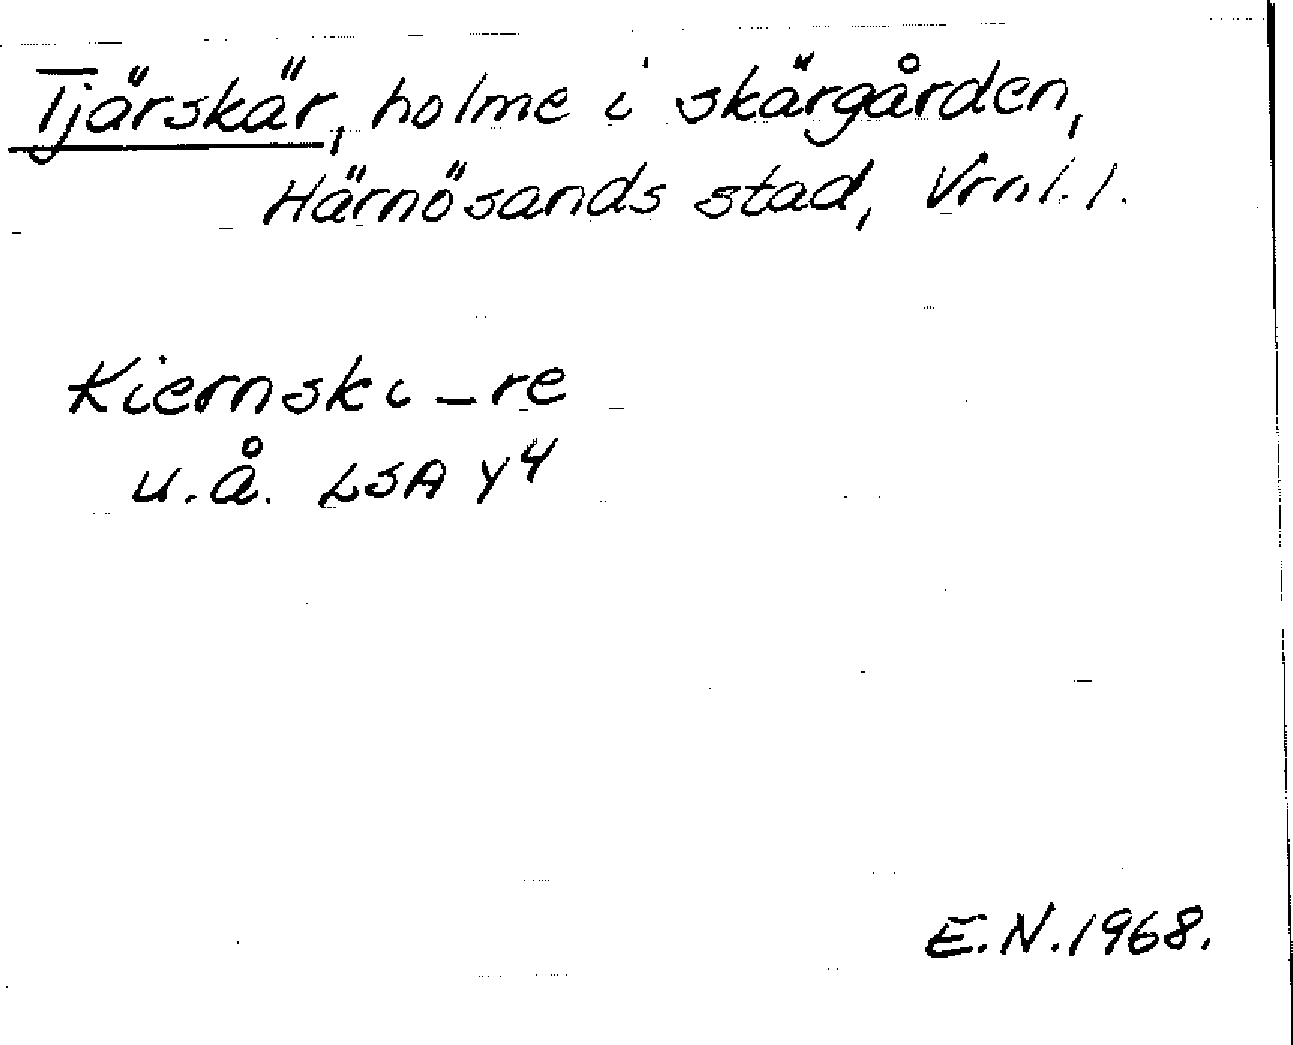 Tjärskär, holme i skärgården,
Härnösands stad, Vrnl. l.
Kiernski_re
u.å. LSA Y4
E.N. 1968.